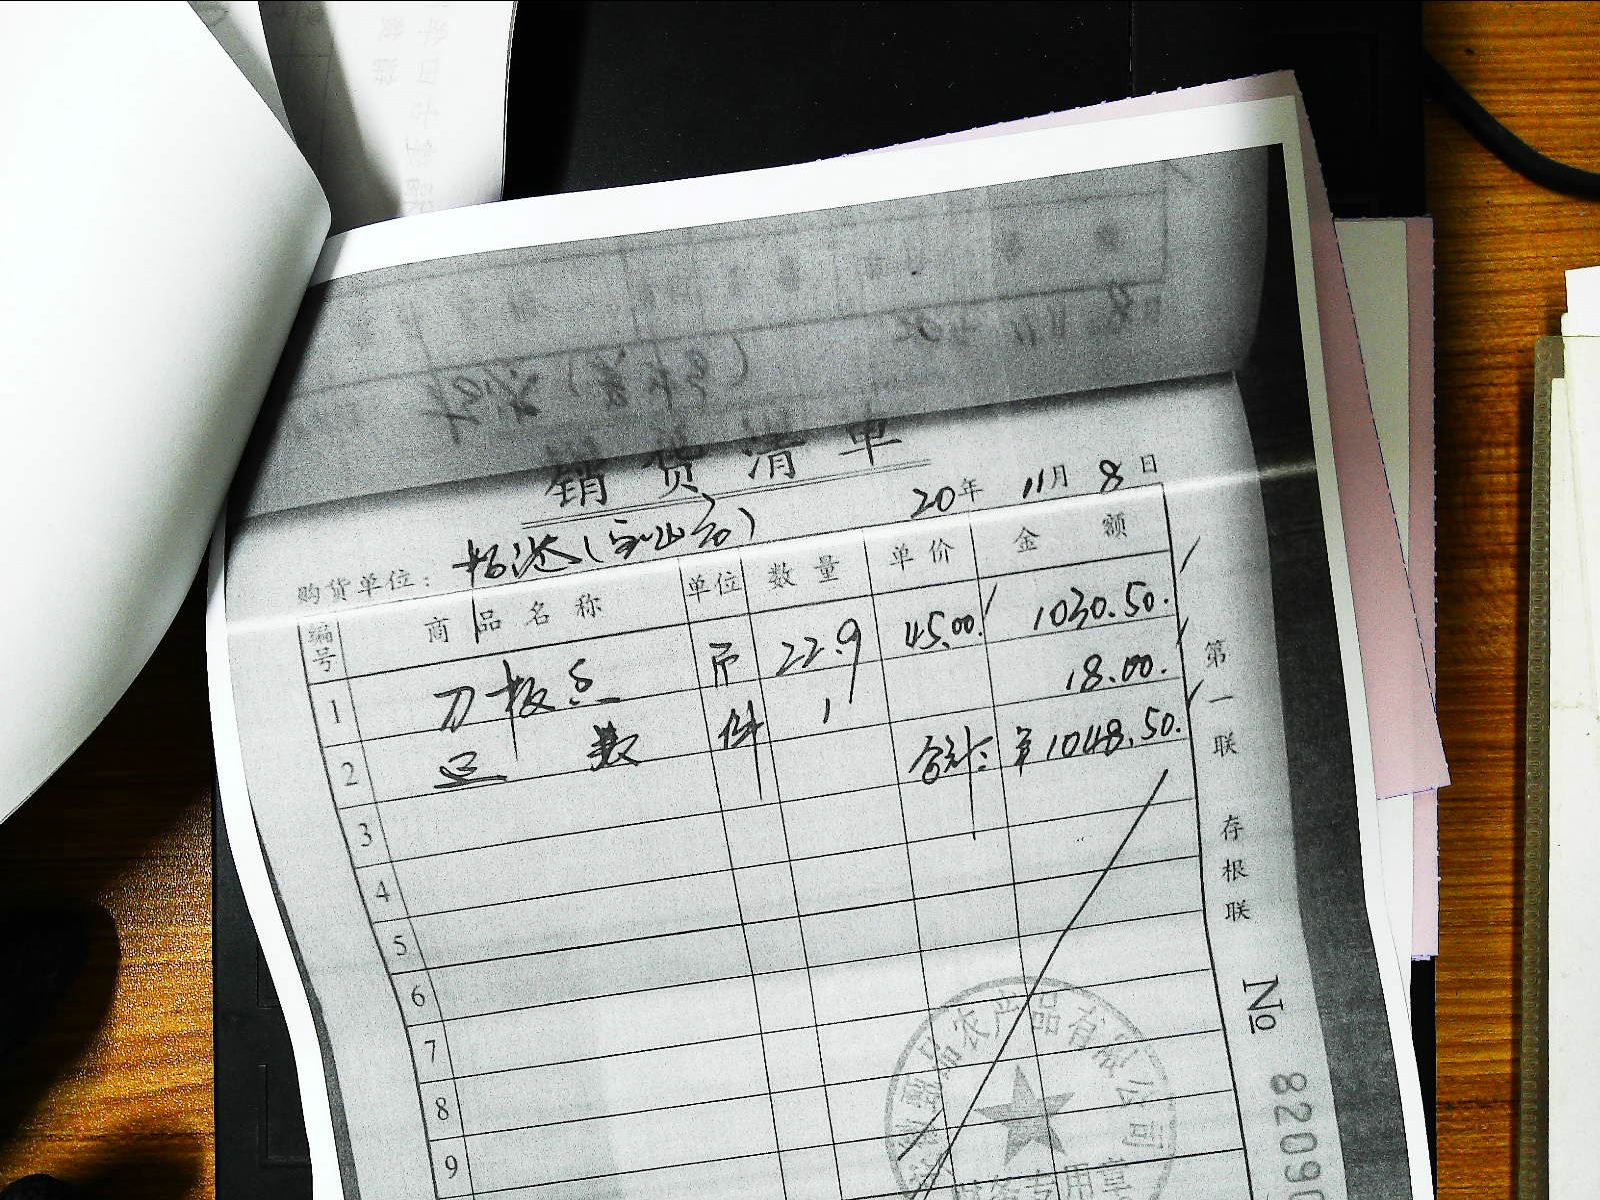 销货清单
20年 11月 8日
购货单位：
编号 商品名称 单位 数量 单价 金额
1 刀板香 斤 22.9 45.00 1030.50.
2 运费 件 1 18.00.
3 合计: ¥1048.50.
4
5
6
7
8
9
第一联 存根联
№ 82090
农产品有限公司
专用章